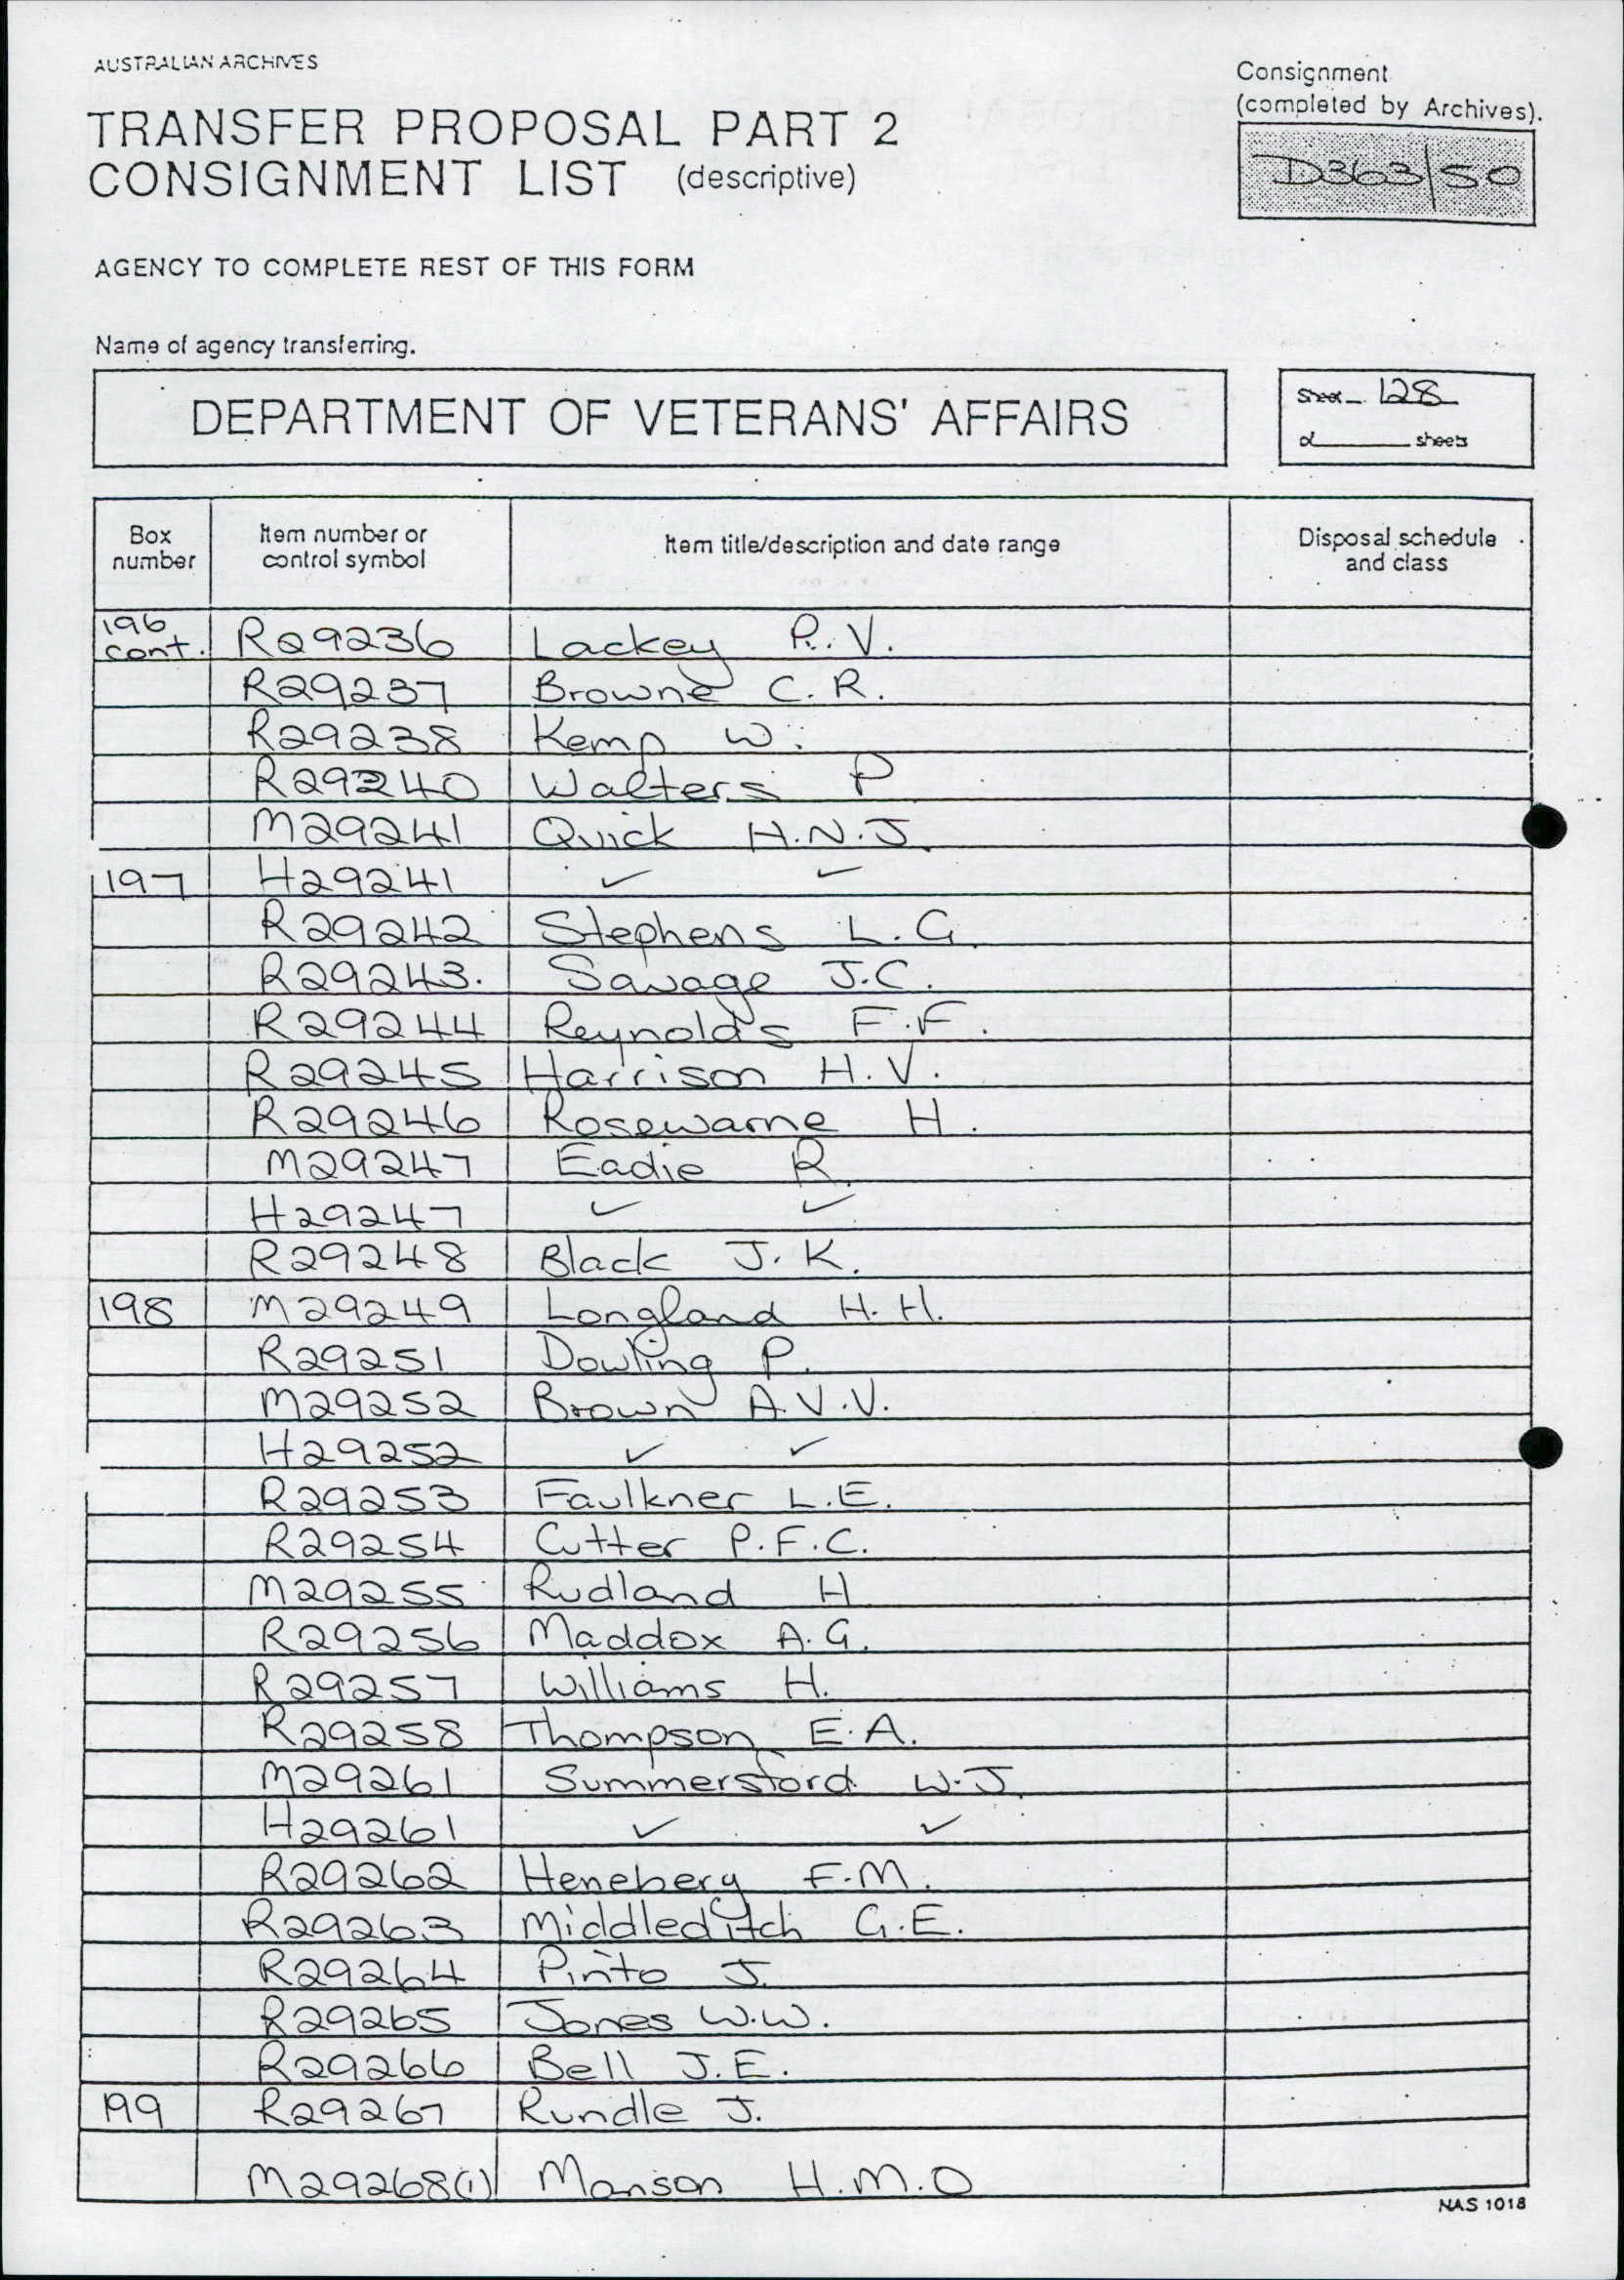 AUSTRALIAN ARCHIVES
TRANSFER PROPOSAL PART 2
CONSIGNMENT LIST (descriptive)
Consignment
(completed by Archives).
D363/50
AGENCY TO COMPLETE REST OF THIS FORM
Name of agency transferring.
DEPARTMENT OF VETERANS' AFFAIRS
Sheet 128
of sheets
Box number Item number or control symbol Item title/description and date range Disposal schedule and class
196 cont. R29236 Lackey R.V.
R29237 Browne C.R.
R29238 Kemp W.
R29240 Walters P
M29241 Quick H.N.J.
197 H29241 ✓ ✓
R29242 Stephens L.G.
R29243. Savage J.C.
R29244 Reynolds F.F.
R29245 Harrison H.V.
R29246 Rosewarne H.
M29247 Eadie R.
H29247 ✓ ✓
R29248 Black J.K.
198 M29249 Longland H.H.
R29251 Dowling P.
M29252 Brown A.V.V.
H29252 ✓ ✓
R29253 Faulkner L.E.
R29254 Cutter P.F.C.
M29255 Rudland H
R29256 Maddox A.G.
R29257 Williams H.
R29258 Thompson E.A.
M29261 Summersford W.J.
H29261 ✓ ✓
R29262 Henebery F.M.
R29263 Middleditch G.E.
R29264 Pinto J.
R29265 Jones W.W.
R29266 Bell J.E.
199 R29267 Rundle J.
M29268(1) Manson H.M.O
NAS 1018